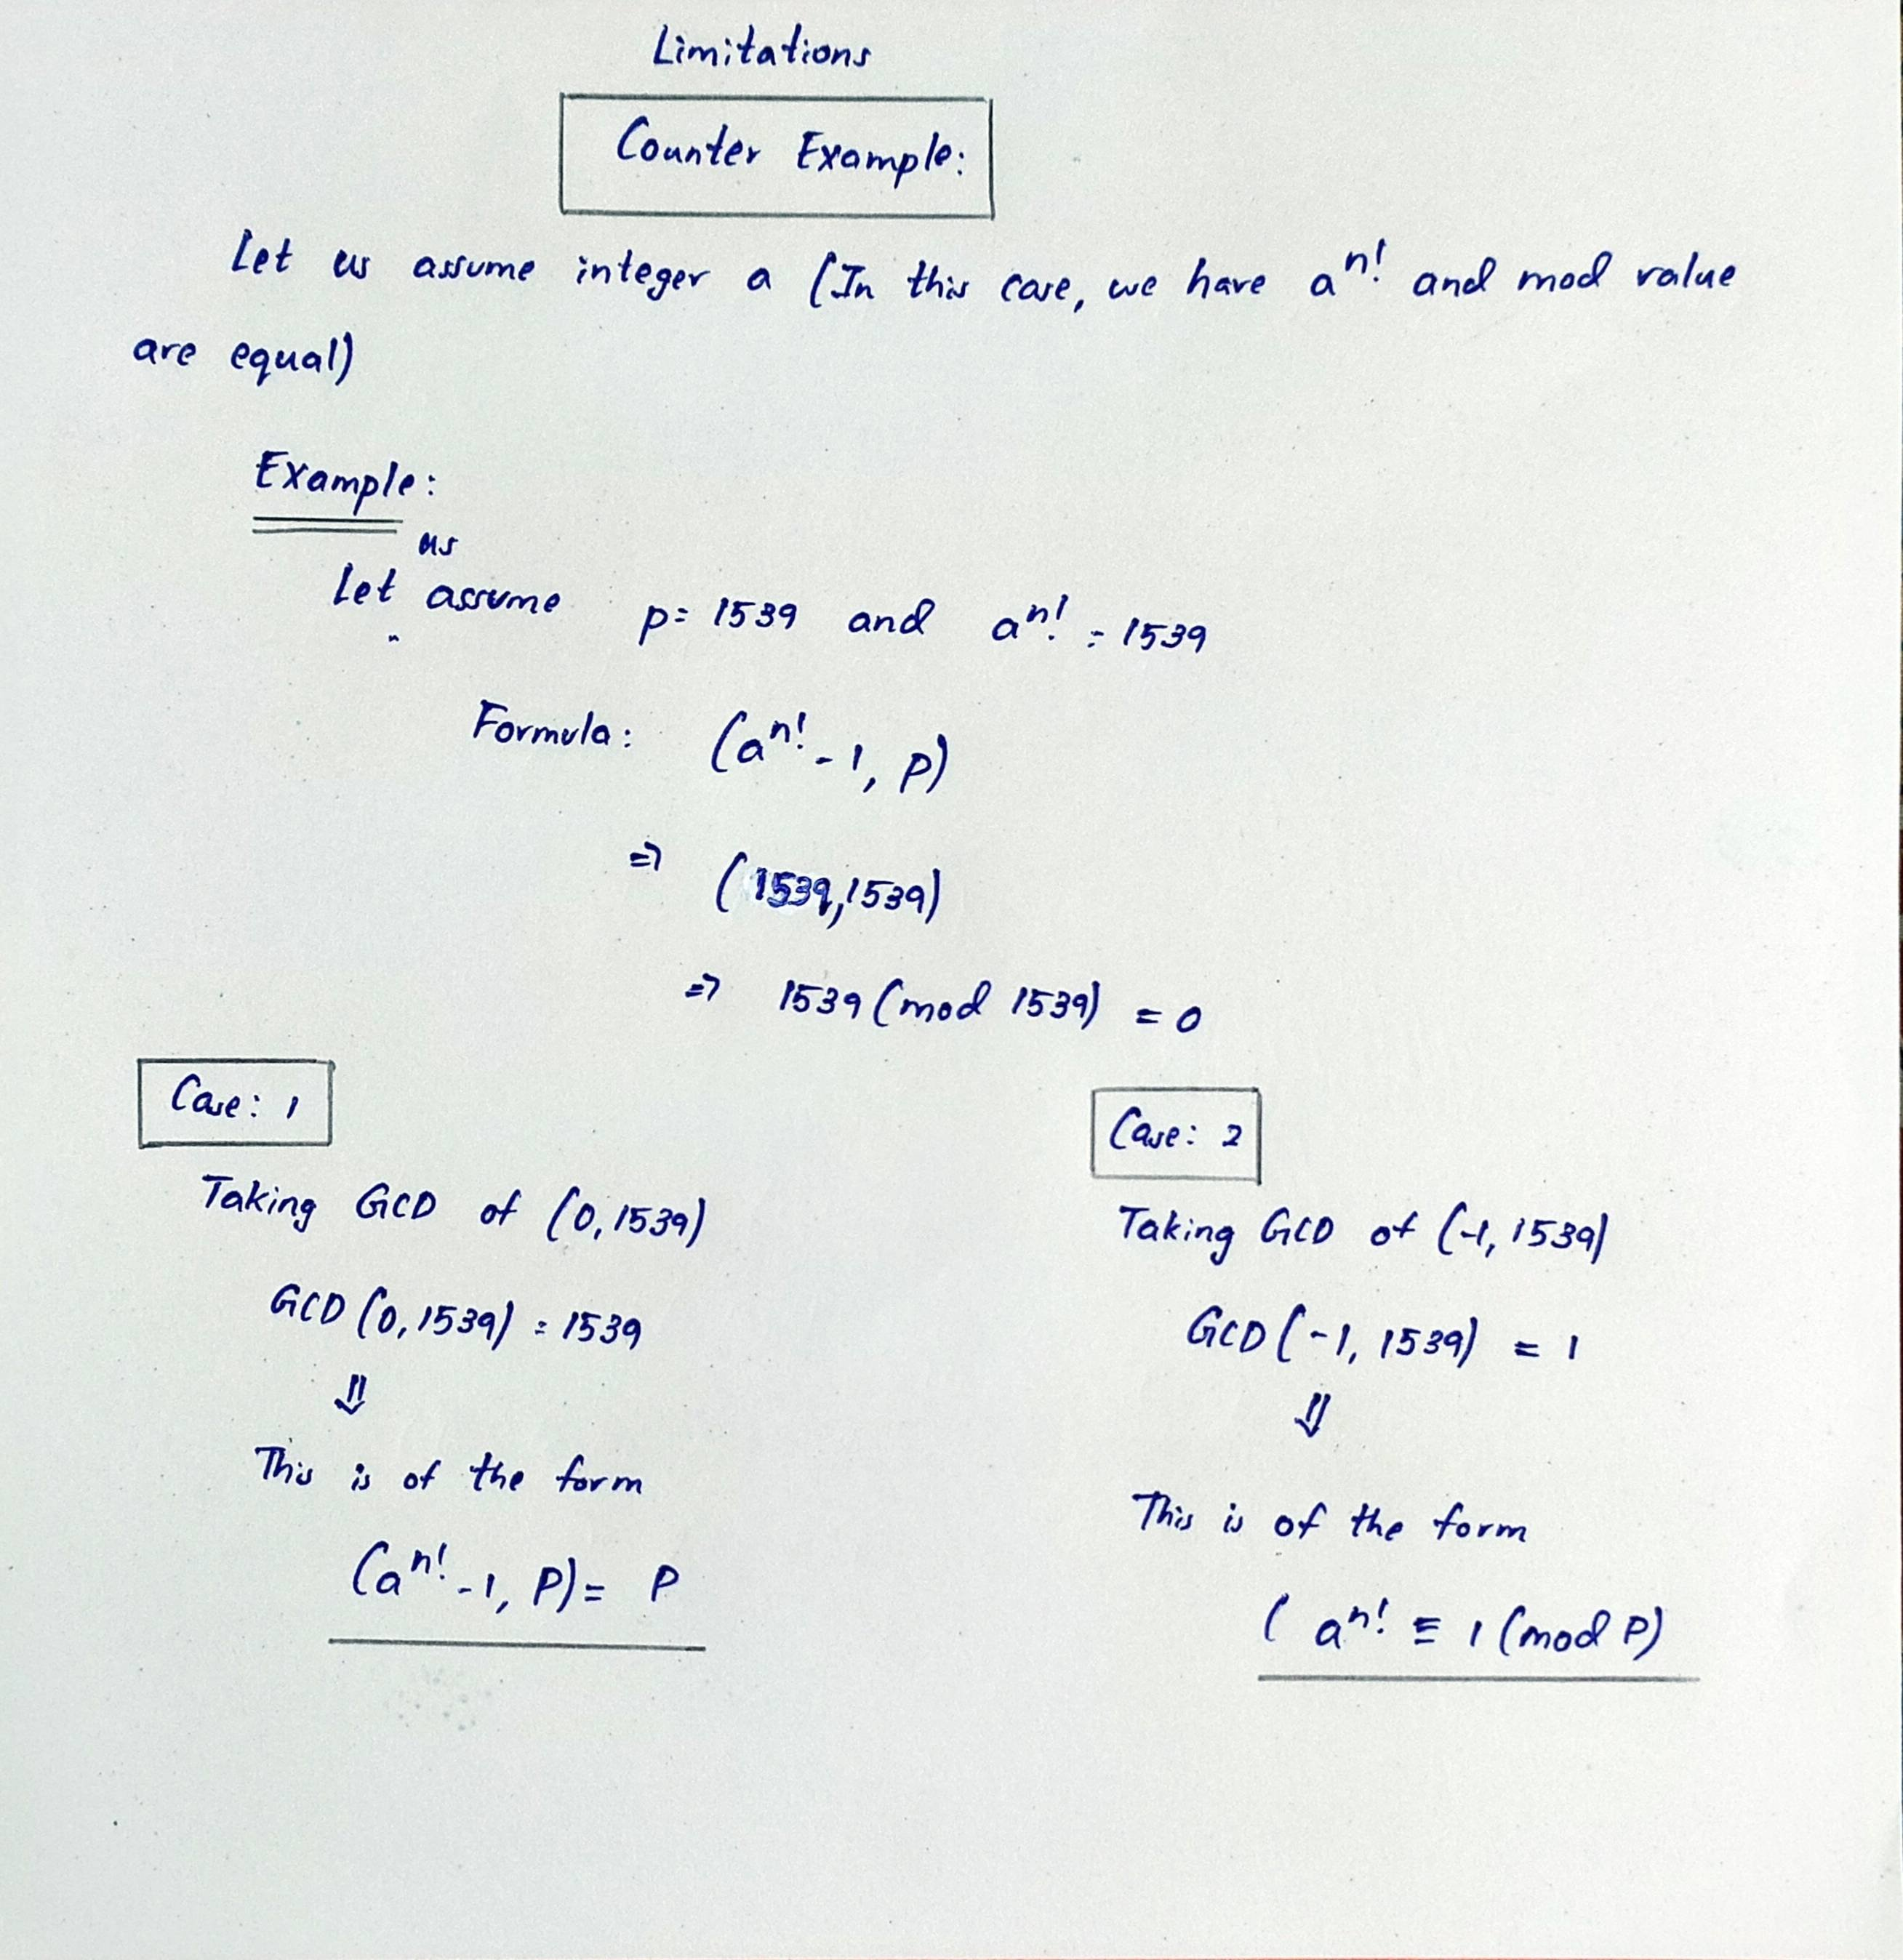 Limitations
Counter Example:
Let us assume integer a (In this case, we have a^n! and mod value
are equal)
Example:
us
Let assume p= 1539 and a^n! = 1539
Formula: (a^n! - 1, p)
⇒ (1539,1539)
⇒ 1539 (mod 1539) = 0
Case: 1
Taking GCD of (0,1539)
GCD (0,1539) = 1539
⇓
This is of the form
(a^n! - 1, P) = P
Case: 2
Taking GCD of (-1, 1539)
GCD (-1, 1539) = 1
⇓
This is of the form
( a^n! ≡ 1 (mod P)